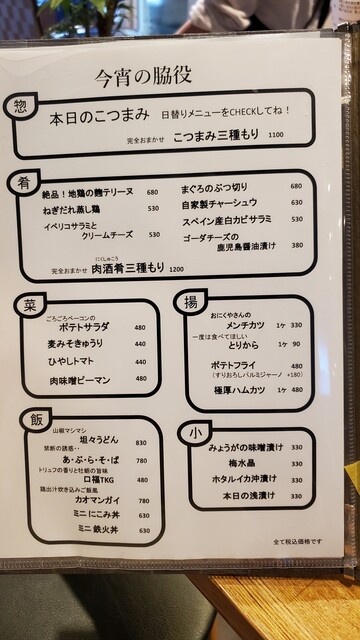 今宵の脇役
惣
本日のこつまみ 日替りメニューをCHECKしてね!
完全おまかせ こつまみ三種もり 1100
肴
絶品!地鶏の麹テリーヌ 680
ねぎだれ蒸し鶏 530
イベリコサラミと
クリームチーズ 530
まぐろのぶつ切り 680
自家製チャーシュウ 630
スペイン産白カビサラミ 530
ゴーダチーズの
鹿児島醤油漬け 380
にくしゅこう
完全おまかせ 肉酒肴三種もり 1200
菜
ごろごろベーコンの
ポテトサラダ 480
麦みそきゅうり 440
ひやしトマト 440
肉味噌ピーマン 480
揚
おにくやさんの
メンチカツ 1ケ 330
一度は食べてほしい
とりから 1ケ 90
ポテトフライ 480
(すりおろしパルミジャーノ +180)
極厚ハムカツ 1ケ 480
飯
山椒マシマシ
坦々うどん 830
禁断の誘惑・・
あ・ぶ・ら・そ・ば 780
トリュフの香りと牡蛎の旨味
口福TKG 480
鶏出汁炊き込みご飯風
カオマンガイ 780
ミニ にこみ丼 630
ミニ 鉄火丼 630
小
みょうがの味噌漬け 330
梅水晶 330
ホタルイカ沖漬け 330
本日の浅漬け 330
全て税込価格です